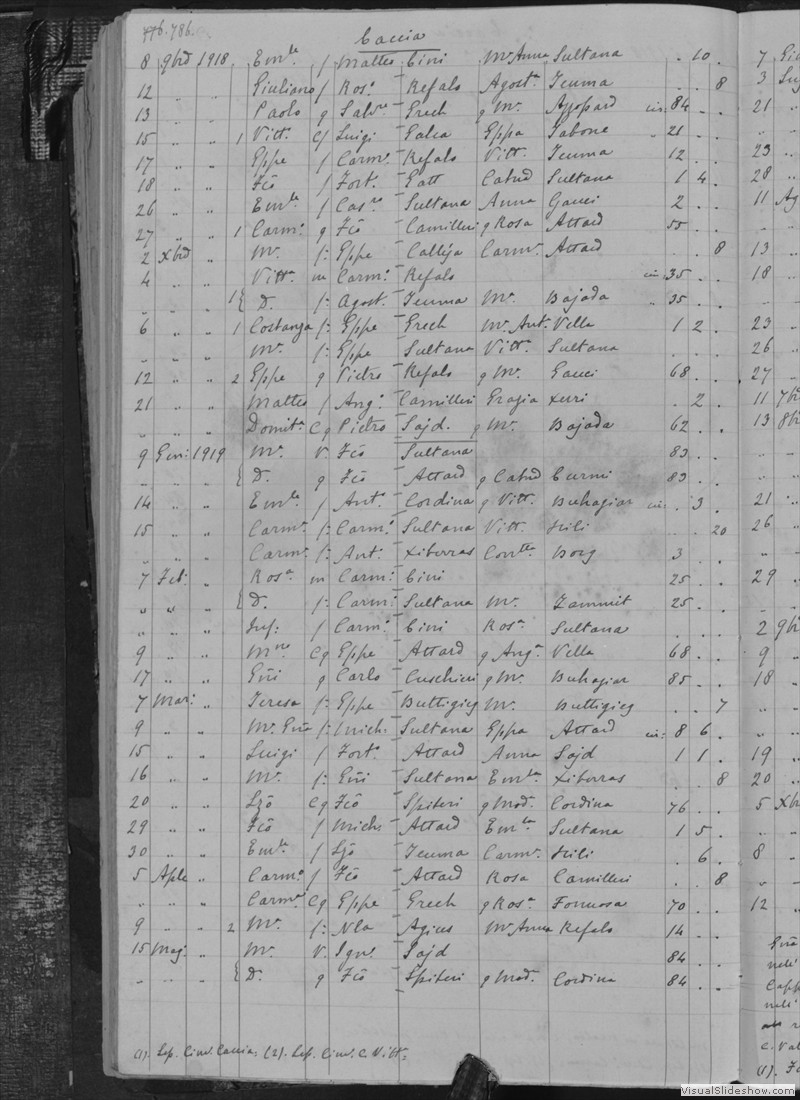 776. 786.
Caccia
8 9brd 1918. Em.la f Matteo Cini Mª Anna Sultana . 10 .
12 " " Giuliano f Ros.º Refalo Agost.ª Teuma . . 8
13 " " Paolo q Salv.re Grech q Mª Azzopard cir: 84 . .
15 " " 1 Vitt.ª C f Luigi Galea Eppa Tabone " 21 . .
17 " " Eppe f Carm.º Refalo Vitt.ª Teuma 12 . .
18 " " Fcõ f Fort.º Gatt Catnd Sultana 1 4 .
26 " " Em.la f Cas.re Sultana Anna Gauci 2 . .
27 " " 1 Carm.º q Fcõ Camilleri q Rosa Attard 55 . .
2 Xbrd " Mª f: Eppe Calleja Carm.ª Attard . . 8
4 " " Vitt.ª m Carm.º Refalo cir: 35 . .
1 { D. f: Agost.º Teuma Mª Bajada " 35 . .
6 " " 1 Costanza f: Eppe Grech Mª Ant.ª Vella 1 2 .
" " " Mª f: Eppe Sultana Vitt.ª Sultana . . .
12 " " 2 Eppe q Pietro Refalo q Mª Gauci 68 . .
21 " " Matteo f Ang.º Camilleri Grazia Xuri . 2 .
" " " Domit.ª C q Pietro Sajd. q Mª Bajada 62 . .
9 Gen: 1919 Mª V. Fcõ Sultana 83 . .
" " " { D. q Fcõ Attard q Catnd Curmi 83 . .
14 " " Em.la f Ant.º Cordina q Vitt.ª Buhagiar cir: . 3 .
15 " " Carm.ª f: Carm.º Sultana Vitt.ª Hili . . 20
" " " Carm.ª f: Ant.º Xiberras Conc.tta Borg 3 . .
7 Feb: " Ros.ª m Carm.º Cini 25 . .
" " " { D. f: Carm.º Sultana Mª Zammit 25 . .
" " " Inf: f Carm.º Cini Ros.ª Sultana . . .
9 " " Mª C q Eppe Attard q Ang.ª Vella 68 . .
17 " " Giñi q Carlo Cuschieri q Mª Buhagiar 85 . .
7 Mar: " Teresa f: Eppe Buttigieg Mª Buttigieg . . 7
9 " " Mª Giña f: Mich: Sultana Eppa Attard cir: 8 6 .
15 " " Luigi f Fort.º Attard Anna Sajd 1 1 .
16 " " Mª f: Giñi Sultana Em.la Xiberras . . 8
20 " " Lzõ C q Fcõ Spiteri q Mad.ª Cordina 76 . .
29 " " Fcõ f Mich: Attard Em.la Sultana 1 5 .
30 " " Em.le f Lzõ Teuma Carm.ª Hili . 6 .
5 Aple " Carm.º f Fcõ Attard Rosa Camilleri . . 8
" " " Carm.º C q Eppe Grech q Ros.ª Formosa 70 . .
9 " " 2 Mª f: Nla Agius Mª Anna Refalo 14 . .
15 Mag: " Mª V. Ign.º Sajd 84 . .
" " " { D. q Fcõ Spiteri q Mad.ª Cordina 84 . .
(1). Sep. Cim. Caccia; (2). Sep. Cim. C. Vitt.ª
7
3
21
23
28
11 Ag
13
18
23
26
27
11 7br
13 8br
21
26
29
2 9br
9
18
19
20
5 Xbr
8
12
VisualSlideshow.com